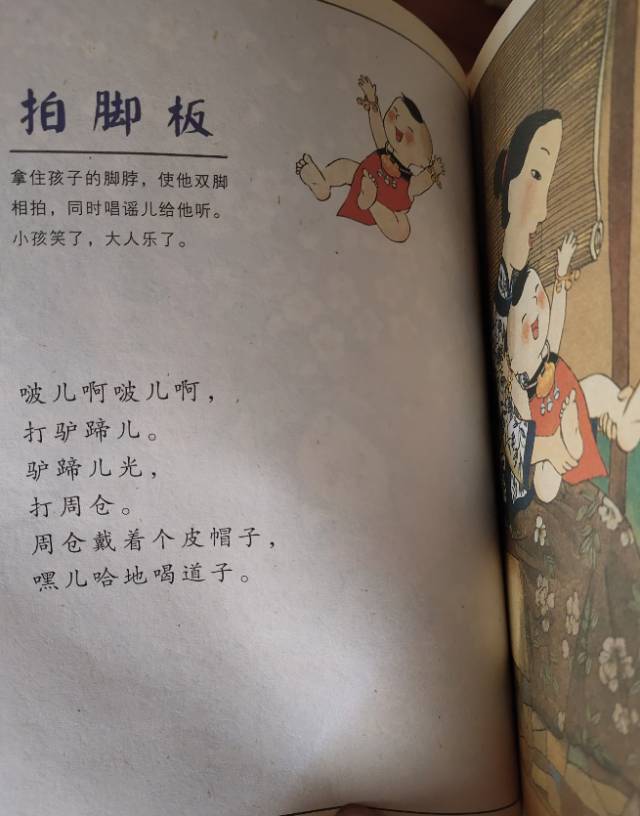 拍脚板
拿住孩子的脚脖，使他双脚
相拍，同时唱谣儿给他听。
小孩笑了，大人乐了。
啵儿啊啵儿啊，
打驴蹄儿。
驴蹄儿光，
打周仓。
周仓戴着个皮帽子，
嘿儿哈地喝道子。